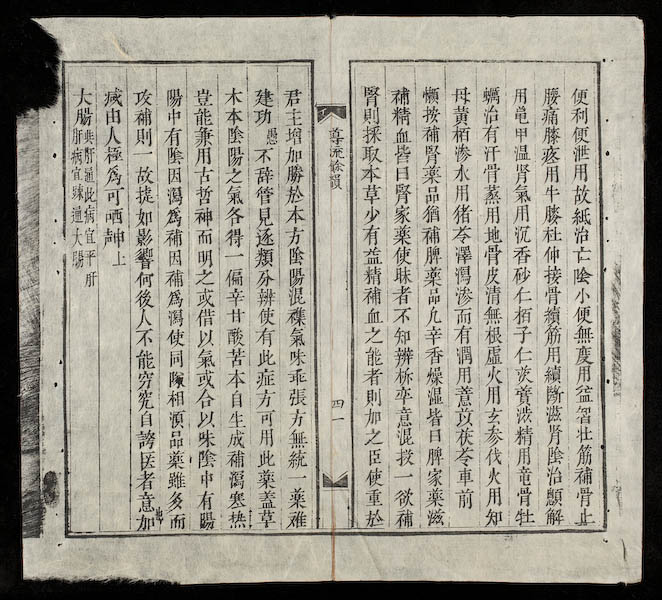 便利便泄用故紙治亡陰小便無度用益智壯筋補骨止
腰痛膝疼用牛膝杜仲接骨續筋用續斷滋肾陰治顖解
用亀甲温肾氣用沉香砂仁栢子仁茨澁精用竜骨牡
蠣治有汗骨蒸用地骨皮清無根虛火用玄参伐火用知
母黄栢滲水用猪苓澤瀉滲而有潤用薏苡茯苓車前
懶按補腎藥品猶補脾藥品凢辛香燥湿皆曰脾家藥滋
補精血皆曰腎家藥使昧者不知辨卒意混投一欲補
腎則採取本草少有益精補血之能者則加之臣使重於
導流餘韻
四一
君主增加勝於本方陰陽混襍氣味乖張方無統一藥难
建功愚不辞管見逐類分辨使有此症方可用此藥盖草
木本陰陽之氣各得一偏辛甘酸苦本自生成補瀉寒热
豈能兼用古哲神而明之或借以氣或合以味陰中有陽
陽中有陰因瀉爲補因補爲瀉使同隊相須品藥雖多而
攻補則一故㨗如影響何後人不能穷究自誇医者意也加
减由人極爲可哂上
大腸
與肝通此病宜平肝
肝病宜疎通大腸